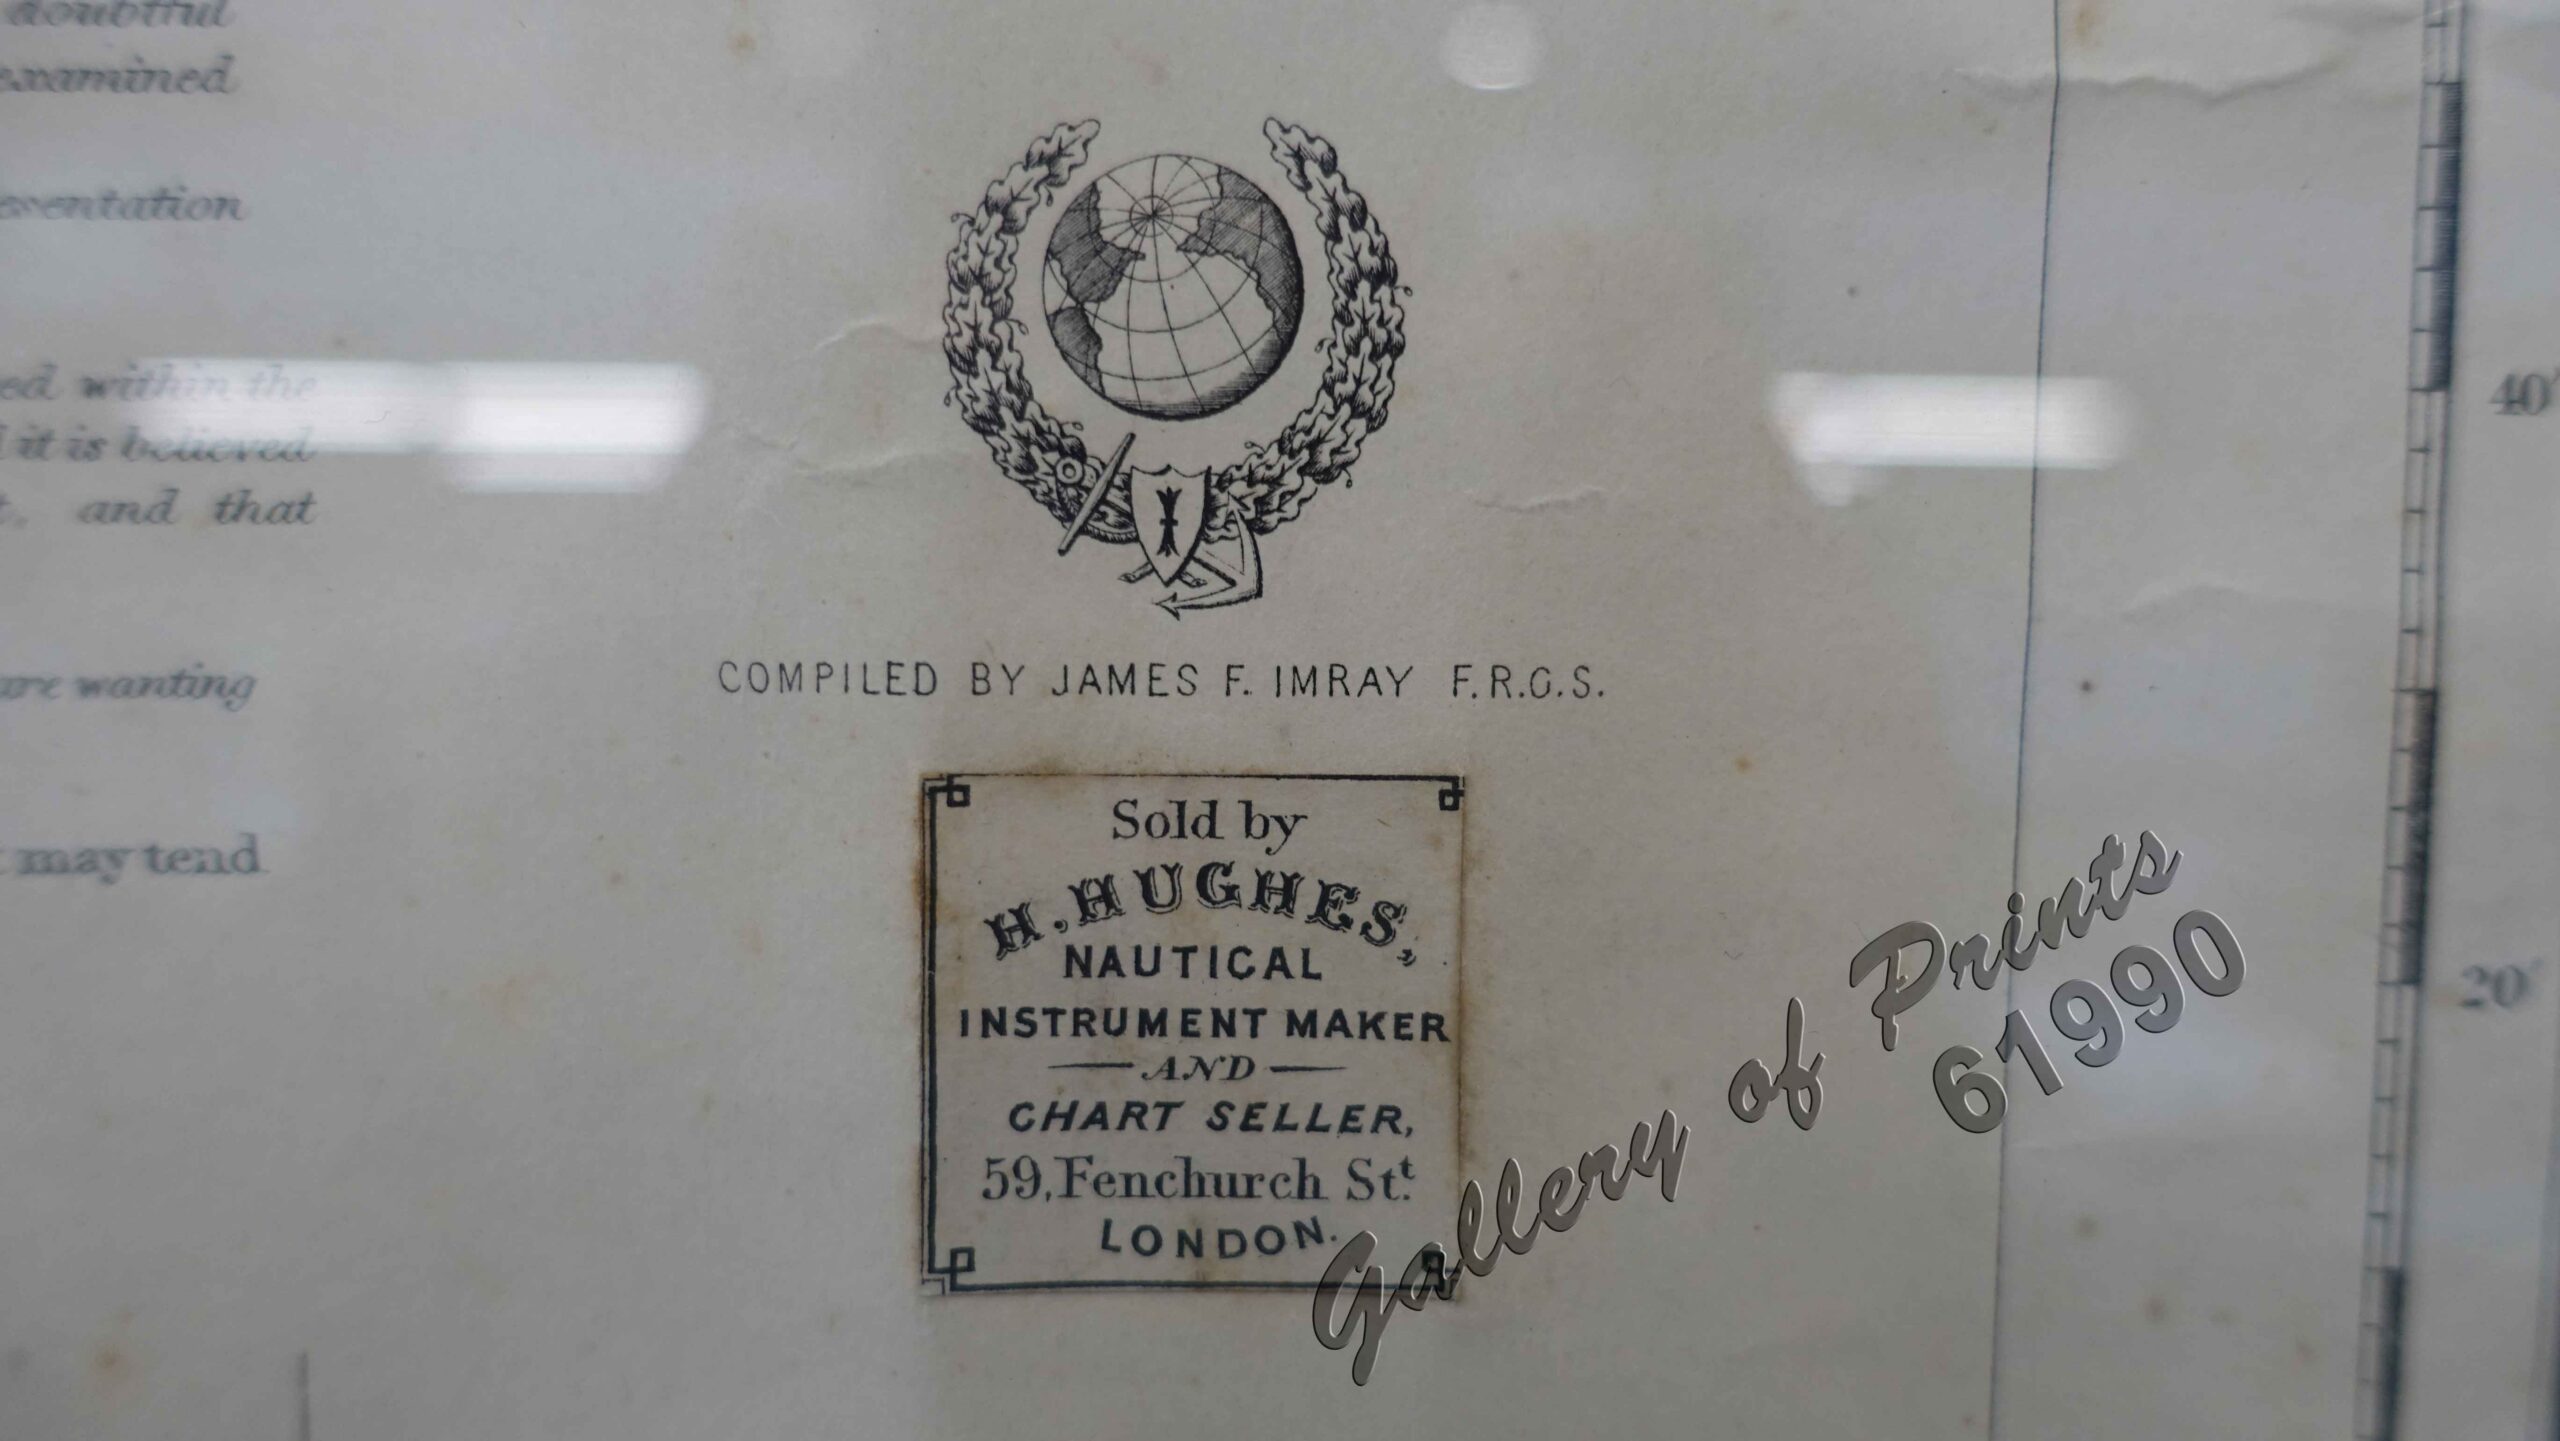 doubtful
examined
ed within the
it is believed
and that
are wanting
may tend
COMPILED BY JAMES F. IMRAY F.R.G.S.
Sold by
H. HUGHES,
NAUTICAL
INSTRUMENT MAKER
AND
CHART SELLER,
59, Fenchurch St.
LONDON.
40'
20'
Gallery of Prints
61990